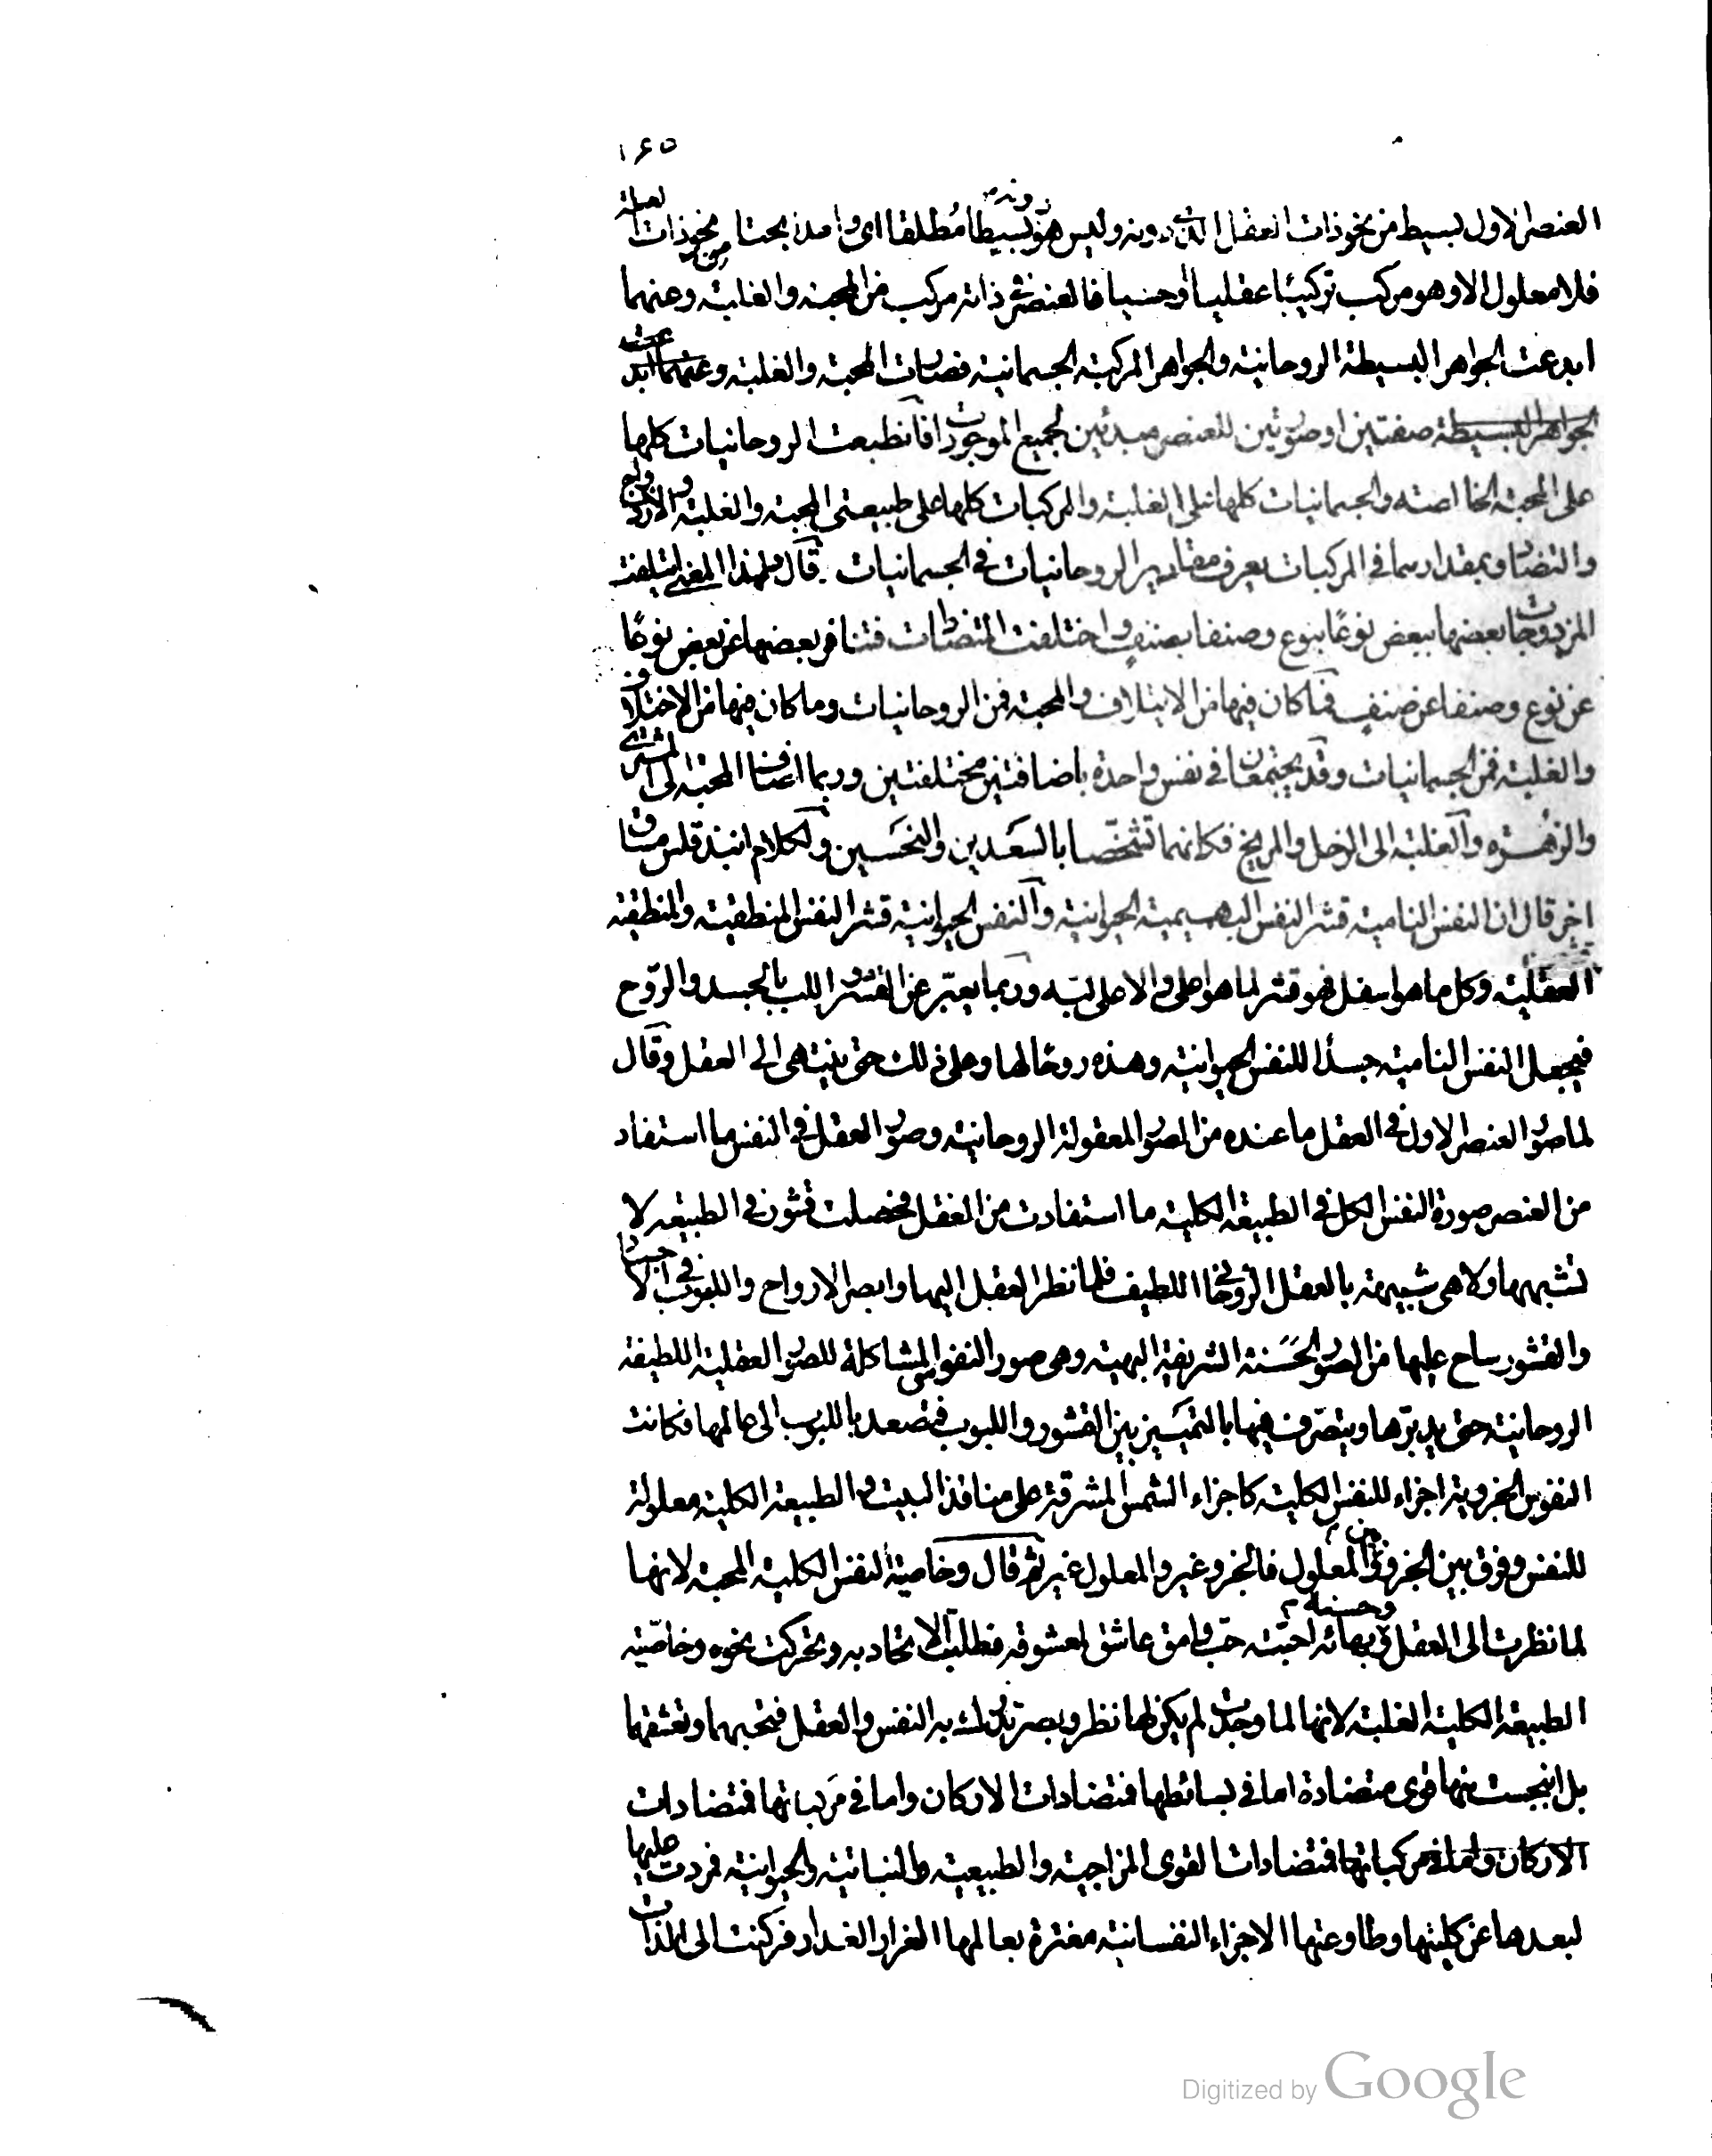 ١٤٥
العنصر الاول بسيط من نحو ذات العقل الذي دونه وليس هو دونه بسيطا مطلقا اى واحدا بحتا من نحو ذات العلة
فلا معلول الا وهو مركب تركيبا عقليا او حسيا فالعنصر في ذاته مركب من المحبة والغلبة وعنهما
ابدعت الجواهر البسيطة الروحانية والجواهر المركبة الجسمانية فصارت المحبة والغلبة وعنهما ابدعت
الجواهر البسيطة صفتين او صورتين للعنصر مبدئين لجميع الموجودات فانطبعت الروحانيات كلها
على المحبة الخالصة والجسمانيات كلها على الغلبة والمركبات كلها على طبيعتى المحبة والغلبة والازدواج
والتضاد وبمقدارهما فى المركبات يعرف مقادير الروحانيات فى الجسمانيات قال ولهذا المعنى ايتلفت
المزدوجات بعضها ببعض نوعا بنوع وصنفا بصنف واختلفت المتضادات فتنافر بعضها عن بعض نوعا
عن نوع وصنفا عن صنف فما كان فيها من الايتلاف والمحبة فمن الروحانيات وما كان فيها من الاختلاف
والغلبة فمن الجسمانيات وقد يجتمعان فى نفس واحدة باضافتين مختلفتين وربما اضاف المحبة الى المشترى
والزهرة والغلبة الى الزحل والمريخ فكانهما تشخصا بالسعدين والنحسين ولكلام انبدقلس مساق
اخر قال ان النفس النامية قشر النفس البهيمية الحيوانية والنفس الحيوانية قشر النفس المنطقية والمنطقية قشر
العقلية وكل ما هو اسفل فهو قشر لما هو اعلى والاعلى لبه وربما يعبر عن القشر واللب بالجسد والروح
فيجعل النفس النامية جسدا للنفس الحيوانية وهذه روحا لها وعلى ذلك حتى ينتهى الى العقل وقال
لما صور العنصر الاول فى العقل ما عنده من الصور المعقولة الروحانية وصور العقل فى النفس ما استفاد
من العنصر صورة النفس الكل فى الطبيعة الكلية ما استفادت من العقل فحصلت قشور فى الطبيعة لا
تشبهها ولا هى شبيهة بالعقل الروحانى اللطيف فلما نظر العقل اليها وابصر الارواح واللبوب فى الاجساد
والقشور ساح عليها من الصور الحسنة الشريفة البهية وهى صور النفوس المشاكلة للصور العقلية اللطيفة
الروحانية حتى يدبرها ويتصرف فيها بالتمييز بين القشور واللبوب فتصعد باللبوب الى عالمها فكانت
النفوس الجزوية اجزاء للنفس الكلية كاجزاء الشمس المشرقة على منافذ البيت والطبيعة الكلية معلولة
للنفس وفرق بين الجزو وبين المعلول فالجزو غير والمعلول غير ثم قال وخاصية النفس الكلية المحبة لانها
لما نظرت الى العقل وحسنه وبهائه احبته حب وامق عاشق لمعشوقه فطلبت الاتحاد به وتحركت نحوه وخاصية
الطبيعة الكلية الغلبة لانها لما وجدت لم يكن لها نظر وبصر تدرك به النفس والعقل فتحبهما وتعشقهما
بل انبجست منها قوى متضادة اما فى بسائطها فتضادات الاركان واما فى مركباتها فتضادات
الاركان واما فى مركباتها فتضادات القوى المزاجية والطبيعية والنباتية والحيوانية فمردت عليها
لبعدها عن كليتها وطاوعتها الاجزاء النفسانية مغترة بعالمها الغرار الغدار فركنت الى اللذات
Digitized by Google